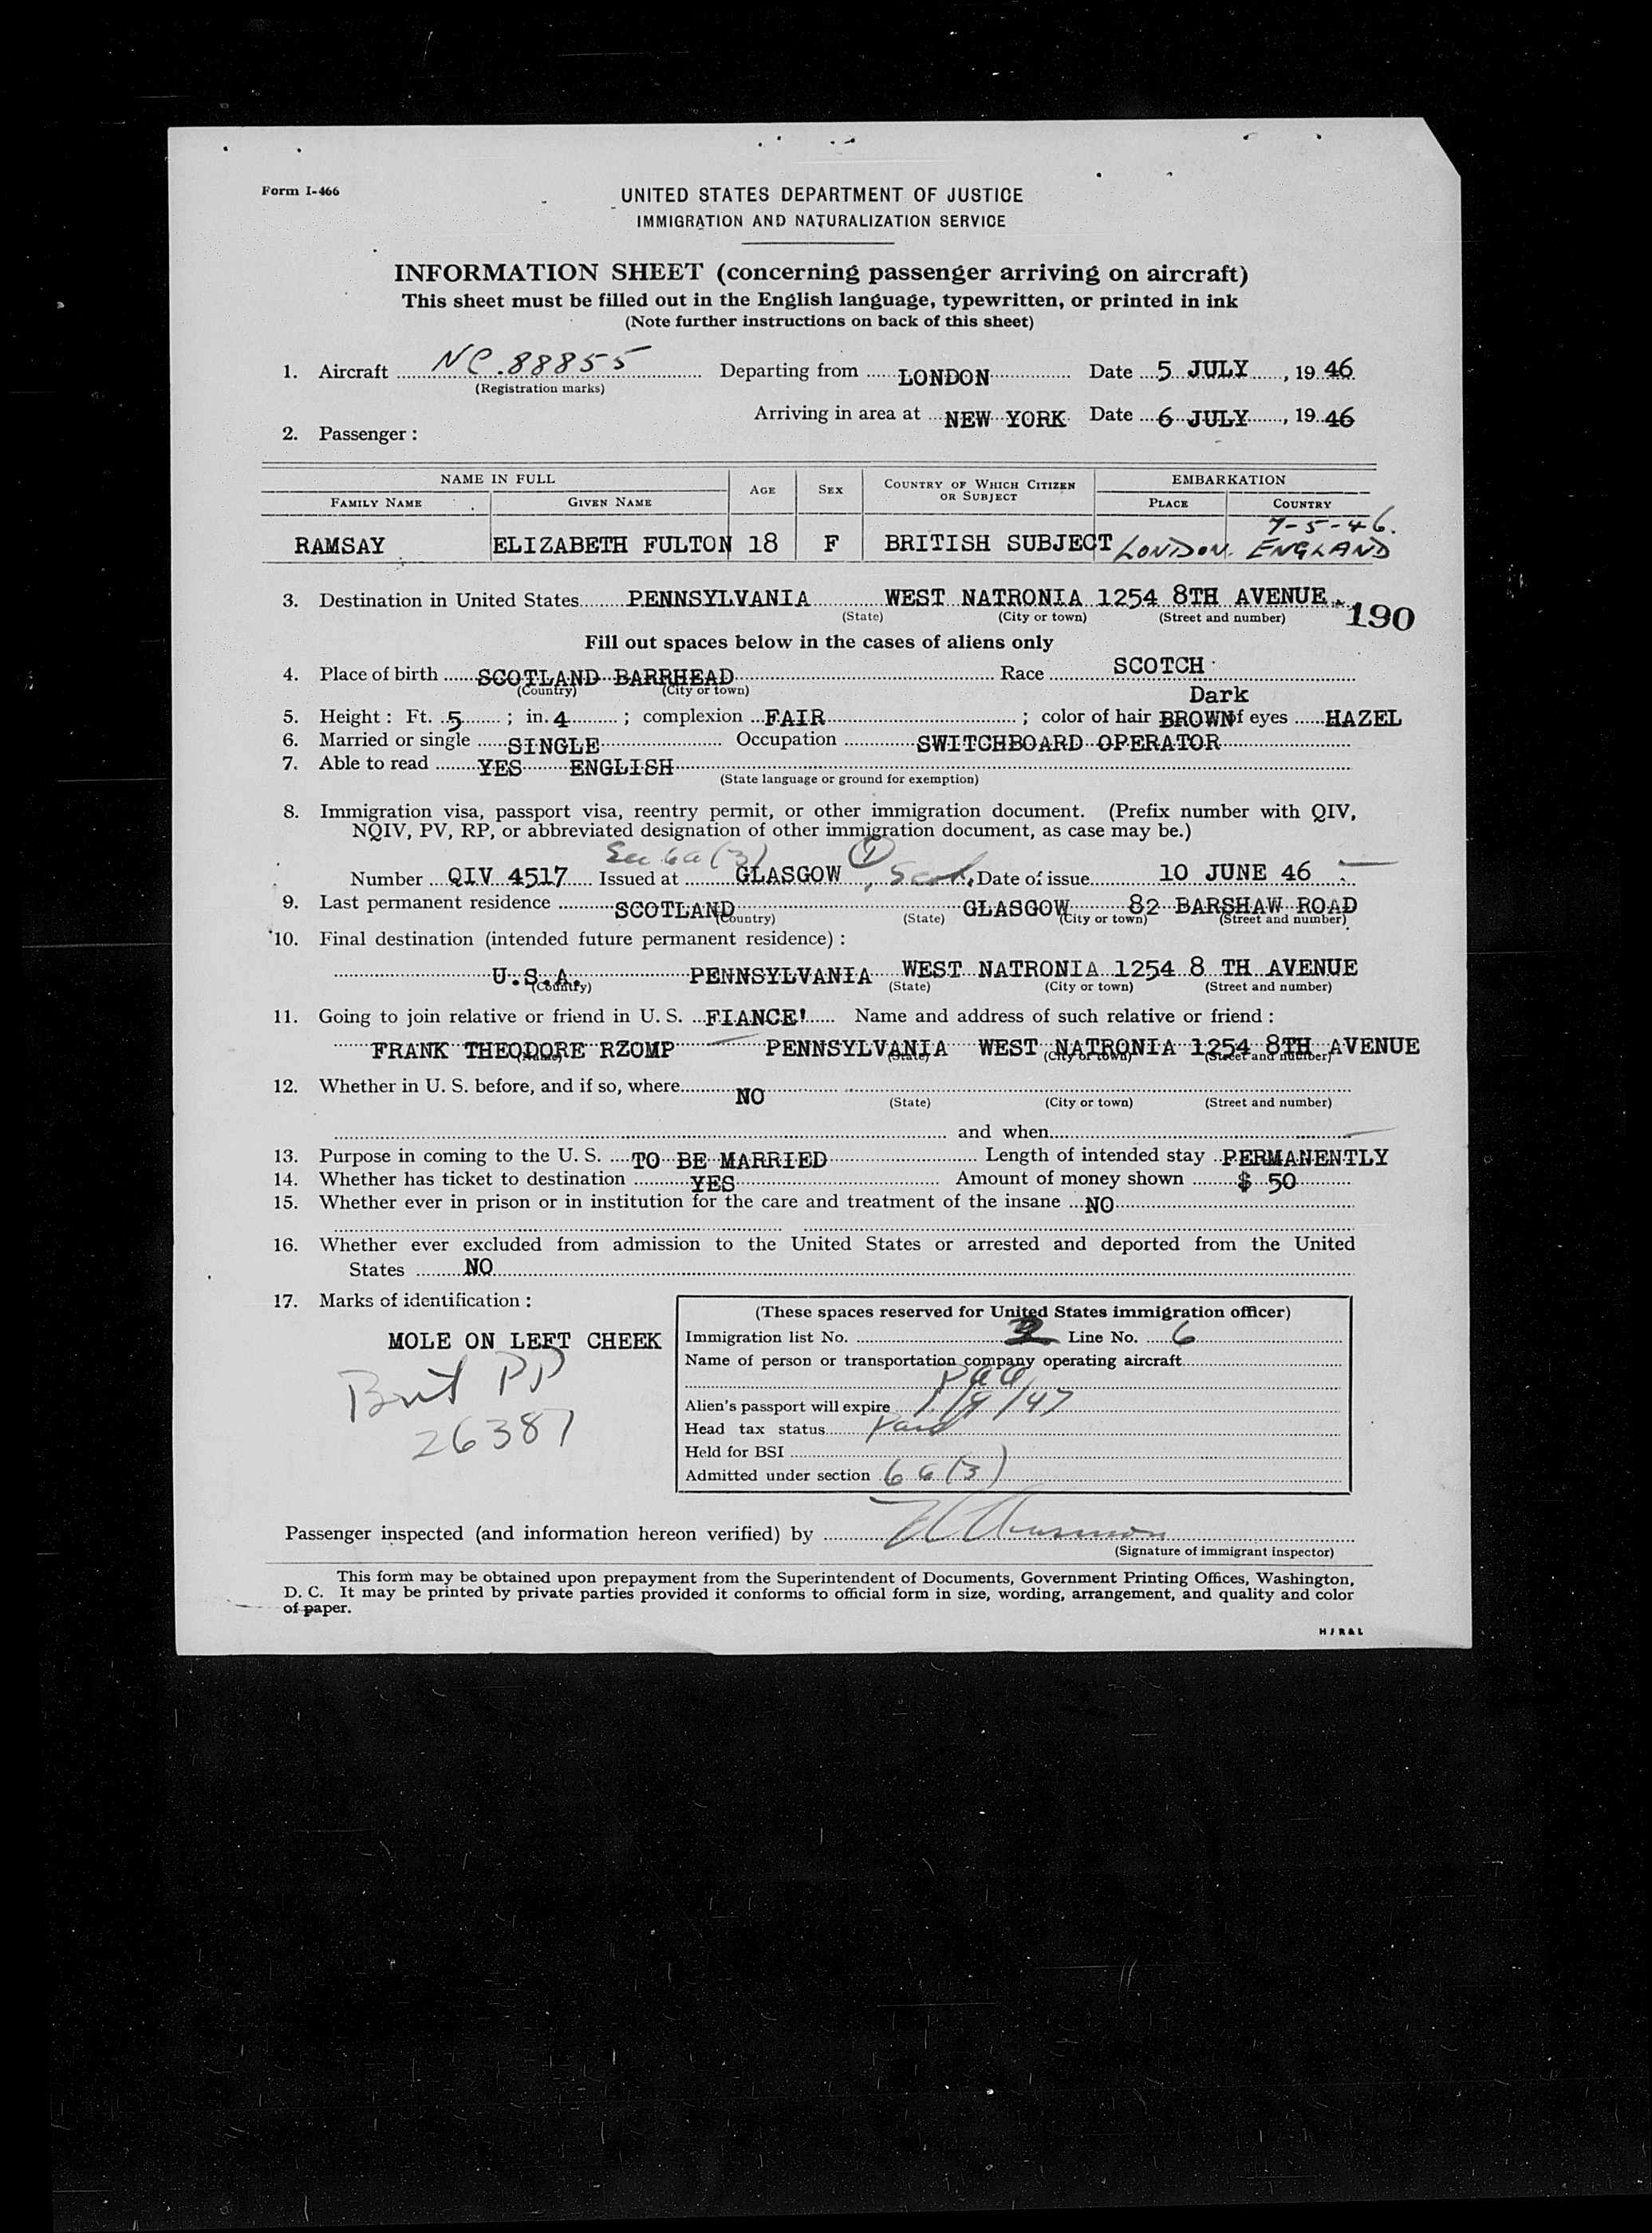 Form I-466
UNITED STATES DEPARTMENT OF JUSTICE
IMMIGRATION AND NATURALIZATION SERVICE
INFORMATION SHEET (concerning passenger arriving on aircraft)
This sheet must be filled out in the English language, typewritten, or printed in ink
(Note further instructions on back of this sheet)
1. Aircraft NC.88855 Departing from LONDON Date 5 JULY, 19 46
(Registration marks)
Arriving in area at NEW YORK Date 6 JULY, 19 46
2. Passenger :
NAME IN FULL AGE SEX COUNTRY OF WHICH CITIZEN OR SUBJECT EMBARKATION
FAMILY NAME GIVEN NAME PLACE COUNTRY
7-5-46.
RAMSAY ELIZABETH FULTON 18 F BRITISH SUBJECT LONDON. ENGLAND
3. Destination in United States PENNSYLVANIA WEST NATRONIA 1254 8TH AVENUE
(State) (City or town) (Street and number) 190
Fill out spaces below in the cases of aliens only
4. Place of birth SCOTLAND BARRHEAD Race SCOTCH
(Country) (City or town)
Dark
5. Height : Ft. 5 ; in. 4 ; complexion FAIR ; color of hair BROWN of eyes HAZEL
6. Married or single SINGLE Occupation SWITCHBOARD OPERATOR
7. Able to read YES ENGLISH
(State language or ground for exemption)
8. Immigration visa, passport visa, reentry permit, or other immigration document. (Prefix number with QIV,
NQIV, PV, RP, or abbreviated designation of other immigration document, as case may be.)
Sec 6a (3) 1
Number QIV 4517 Issued at GLASGOW, Scot. Date of issue 10 JUNE 46
9. Last permanent residence SCOTLAND GLASGOW 82 BARSHAW ROAD
(Country) (State) (City or town) (Street and number)
10. Final destination (intended future permanent residence) :
U.S.A. PENNSYLVANIA WEST NATRONIA 1254 8 TH AVENUE
(Country) (State) (City or town) (Street and number)
11. Going to join relative or friend in U. S. FIANCE' Name and address of such relative or friend :
FRANK THEODORE RZOMP PENNSYLVANIA WEST NATRONIA 1254 8TH AVENUE
(Name) (State) (City or town) (Street and number)
12. Whether in U. S. before, and if so, where NO
(State) (City or town) (Street and number)
and when
13. Purpose in coming to the U. S. TO BE MARRIED Length of intended stay PERMANENTLY
14. Whether has ticket to destination YES Amount of money shown $ 50
15. Whether ever in prison or in institution for the care and treatment of the insane NO
16. Whether ever excluded from admission to the United States or arrested and deported from the United
States NO
17. Marks of identification :
MOLE ON LEFT CHEEK
Brit PP
26387
(These spaces reserved for United States immigration officer)
Immigration list No. 2 Line No. 6
Name of person or transportation company operating aircraft
PAA
Alien's passport will expire 1/9/47
Head tax status Paid
Held for BSI
Admitted under section 6 a (3)
Passenger inspected (and information hereon verified) by
(Signature of immigrant inspector)
This form may be obtained upon prepayment from the Superintendent of Documents, Government Printing Offices, Washington,
D. C. It may be printed by private parties provided it conforms to official form in size, wording, arrangement, and quality and color
of paper.
H/R&L